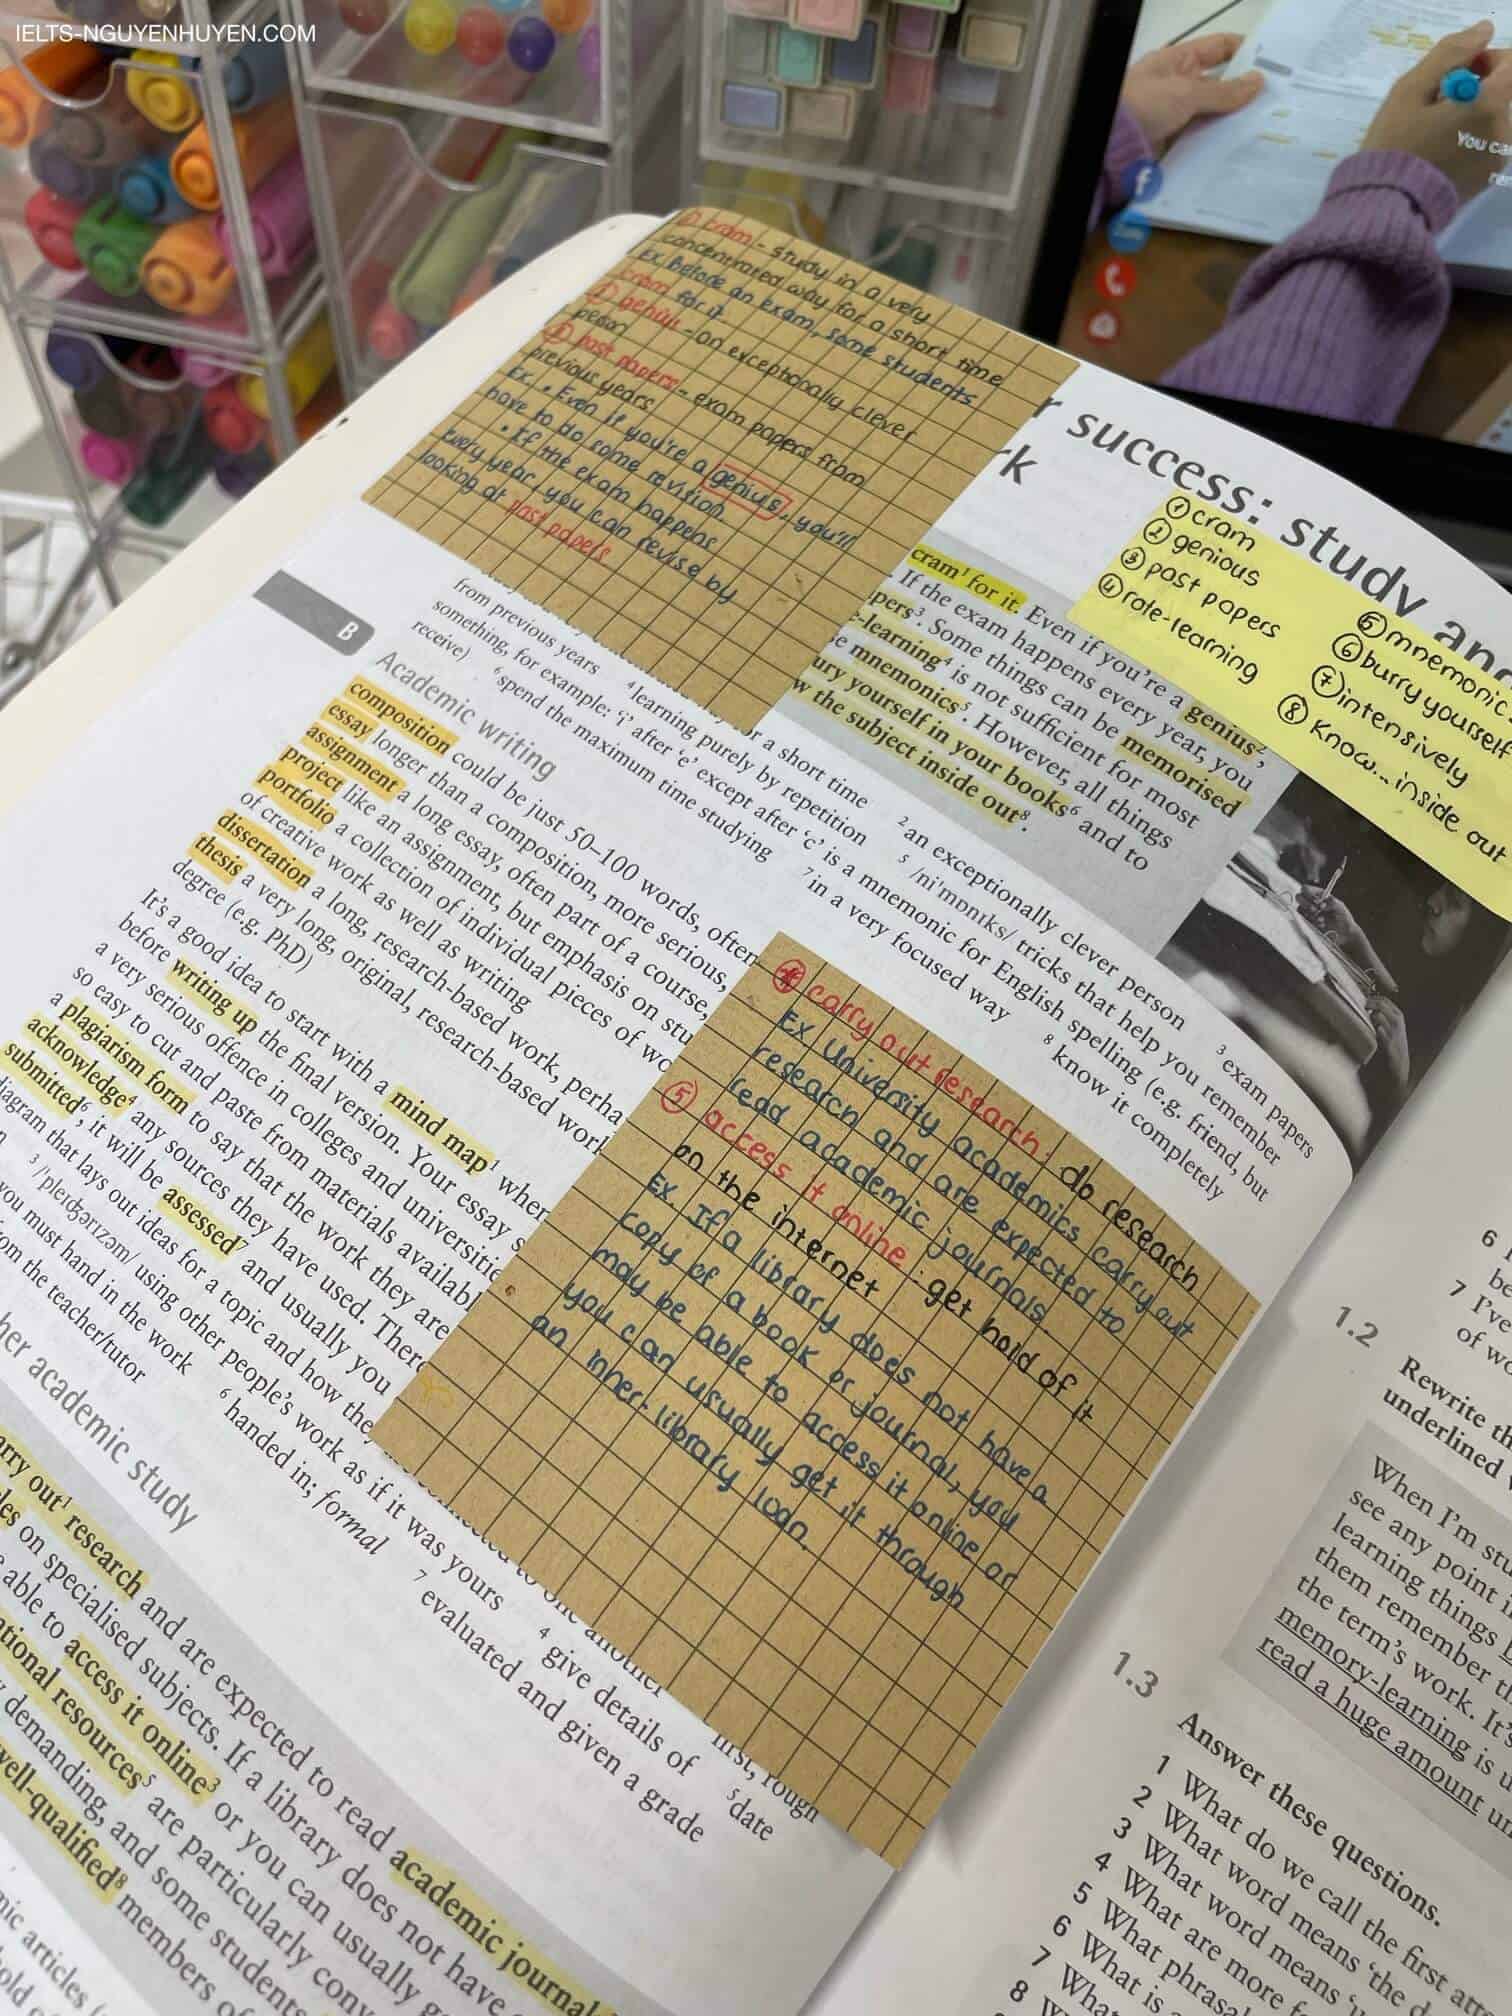 IELTS-NGUYENHUYEN.COM
You ca
① cram - study in a very
concentrated way for a short time
Ex. Before an exam, some students
cram for it
② genius - an exceptionally clever
person
③ past papers - exam papers from
previous years
Ex. • Even if you're a genius, you'll
have to do some revision.
• If the exam happens
every year, you can revise by
looking at past papers
r success: study an
rk
① cram
② genious
③ past papers
④ rote-learning
⑤ mnemonic
⑥ burry yourself
⑦ intensively
⑧ Know... inside out
cram¹ for it. Even if you're a genius²,
. If the exam happens every year, you
pers³. Some things can be memorised
e-learning⁴ is not sufficient for most
e mnemonics⁵. However, all things
ury yourself in your books⁶ and to
w the subject inside out⁸.
or a short time
² an exceptionally clever person
³ exam papers
from previous years
⁴ learning purely by repetition
⁵ /nɪˈmɒnɪks/ tricks that help you remember
something, for example: 'i' after 'e' except after 'c' is a mnemonic for English spelling (e.g. friend, but
receive)
⁶ spend the maximum time studying
⁷ in a very focused way
⁸ know it completely
B
Academic writing
composition could be just 50–100 words, often
essay longer than a composition, more serious,
assignment a long essay, often part of a course,
project like an assignment, but emphasis on stu
portfolio a collection of individual pieces of wo
of creative work as well as writing
dissertation a long, research-based work, perha
thesis a very long, original, research-based work
degree (e.g. PhD)
It's a good idea to start with a mind map¹ when
before writing up the final version. Your essay s
a very serious offence in colleges and universitie
so easy to cut and paste from materials availabl
a plagiarism form to say that the work they are
acknowledge⁴ any sources they have used. There
submitted⁶, it will be assessed⁷ and usually you
diagram that lays out ideas for a topic and how they
first, rough
³ /ˈpleɪdʒərɪzəm/ using other people's work as if it was yours
⁴ give details of
⁵ date
you must hand in the work
⁶ handed in; formal
⁷ evaluated and given a grade
from the teacher/tutor
④ carry out research: do research
Ex University academics carry out
research and are expected to
read academic journals.
⑤ access it online: get hold of it
on the internet
Ex. If a library does not have a
copy of a book or journal, you
may be able to access it online or
you can usually get it through
an inner-library loan.
her academic study
arry out¹ research and are expected to read academic journal
les on specialised subjects. If a library does not have
able to access it online³ or you can usually g
tional resources⁵ are particularly conv
demanding, and some students
well-qualified⁸ members of
mic articles
old of
6
be
7 I've
of wo
1.2
Rewrite th
underlined
When I'm stu
see any point i
learning things
them remember th
the term's work. It's
memory-learning is u
read a huge amount un
1.3
Answer these questions.
1 What do we call the first att
2 What word means 'the
3 What word means '
4 What are more f
5 What phras
6 What is
7 What
8 W